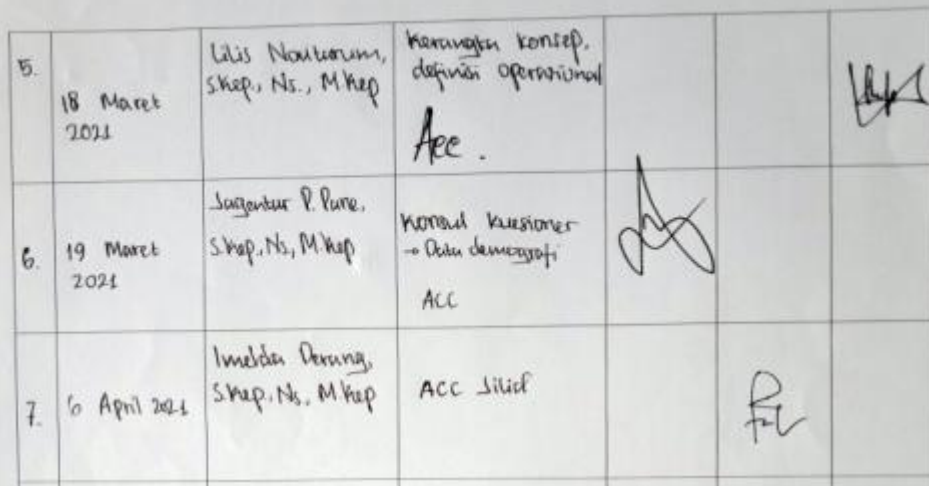 5.
18 Maret
2021
Lilis Novitarum,
S.Kep., Ns., M.Kep
Kerangka konsep,
definisi operasional
Acc.
6.
19 Maret
2021
Jagentar P. Pane,
S.Kep, Ns, M.Kep
Konsul kuesioner
→ Data demografi
ACC
7.
6 April 2021
Imelda Derang,
S.Kep, Ns, M.Kep
ACC Jilid